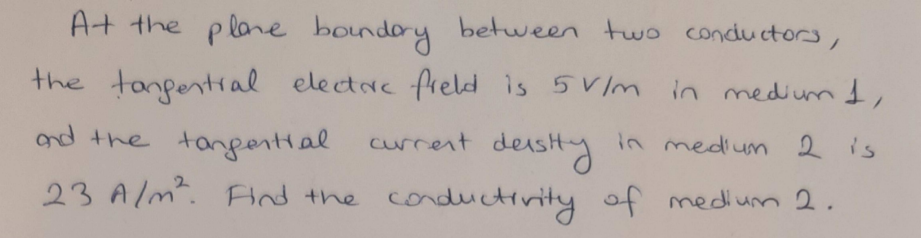 At the plane boundary between two conductors,
the tangential electric field is 5 V/m in medium 1,
and the tangential current density in medium 2 is
23 A/m². Find the conductivity of medium 2.